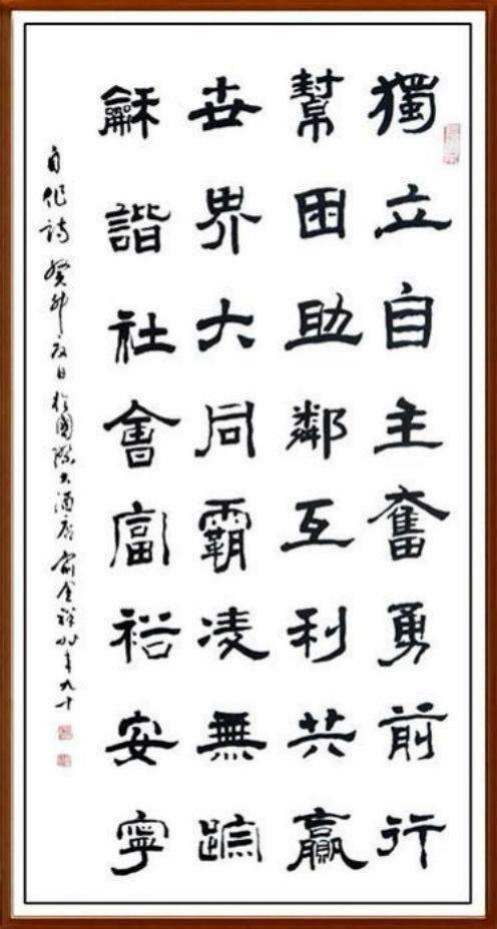 獨立自主奮勇前行
幫困助鄰互利共贏
世界大同霸凌無踪
龢諧社會富裕安寧
自作詩 癸卯夏日於國際大酒店 俞金祥 年九十